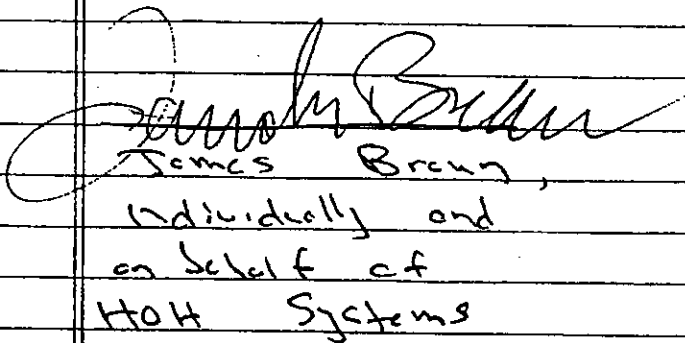 James Braun,
individually and
on behalf of
HOH Systems